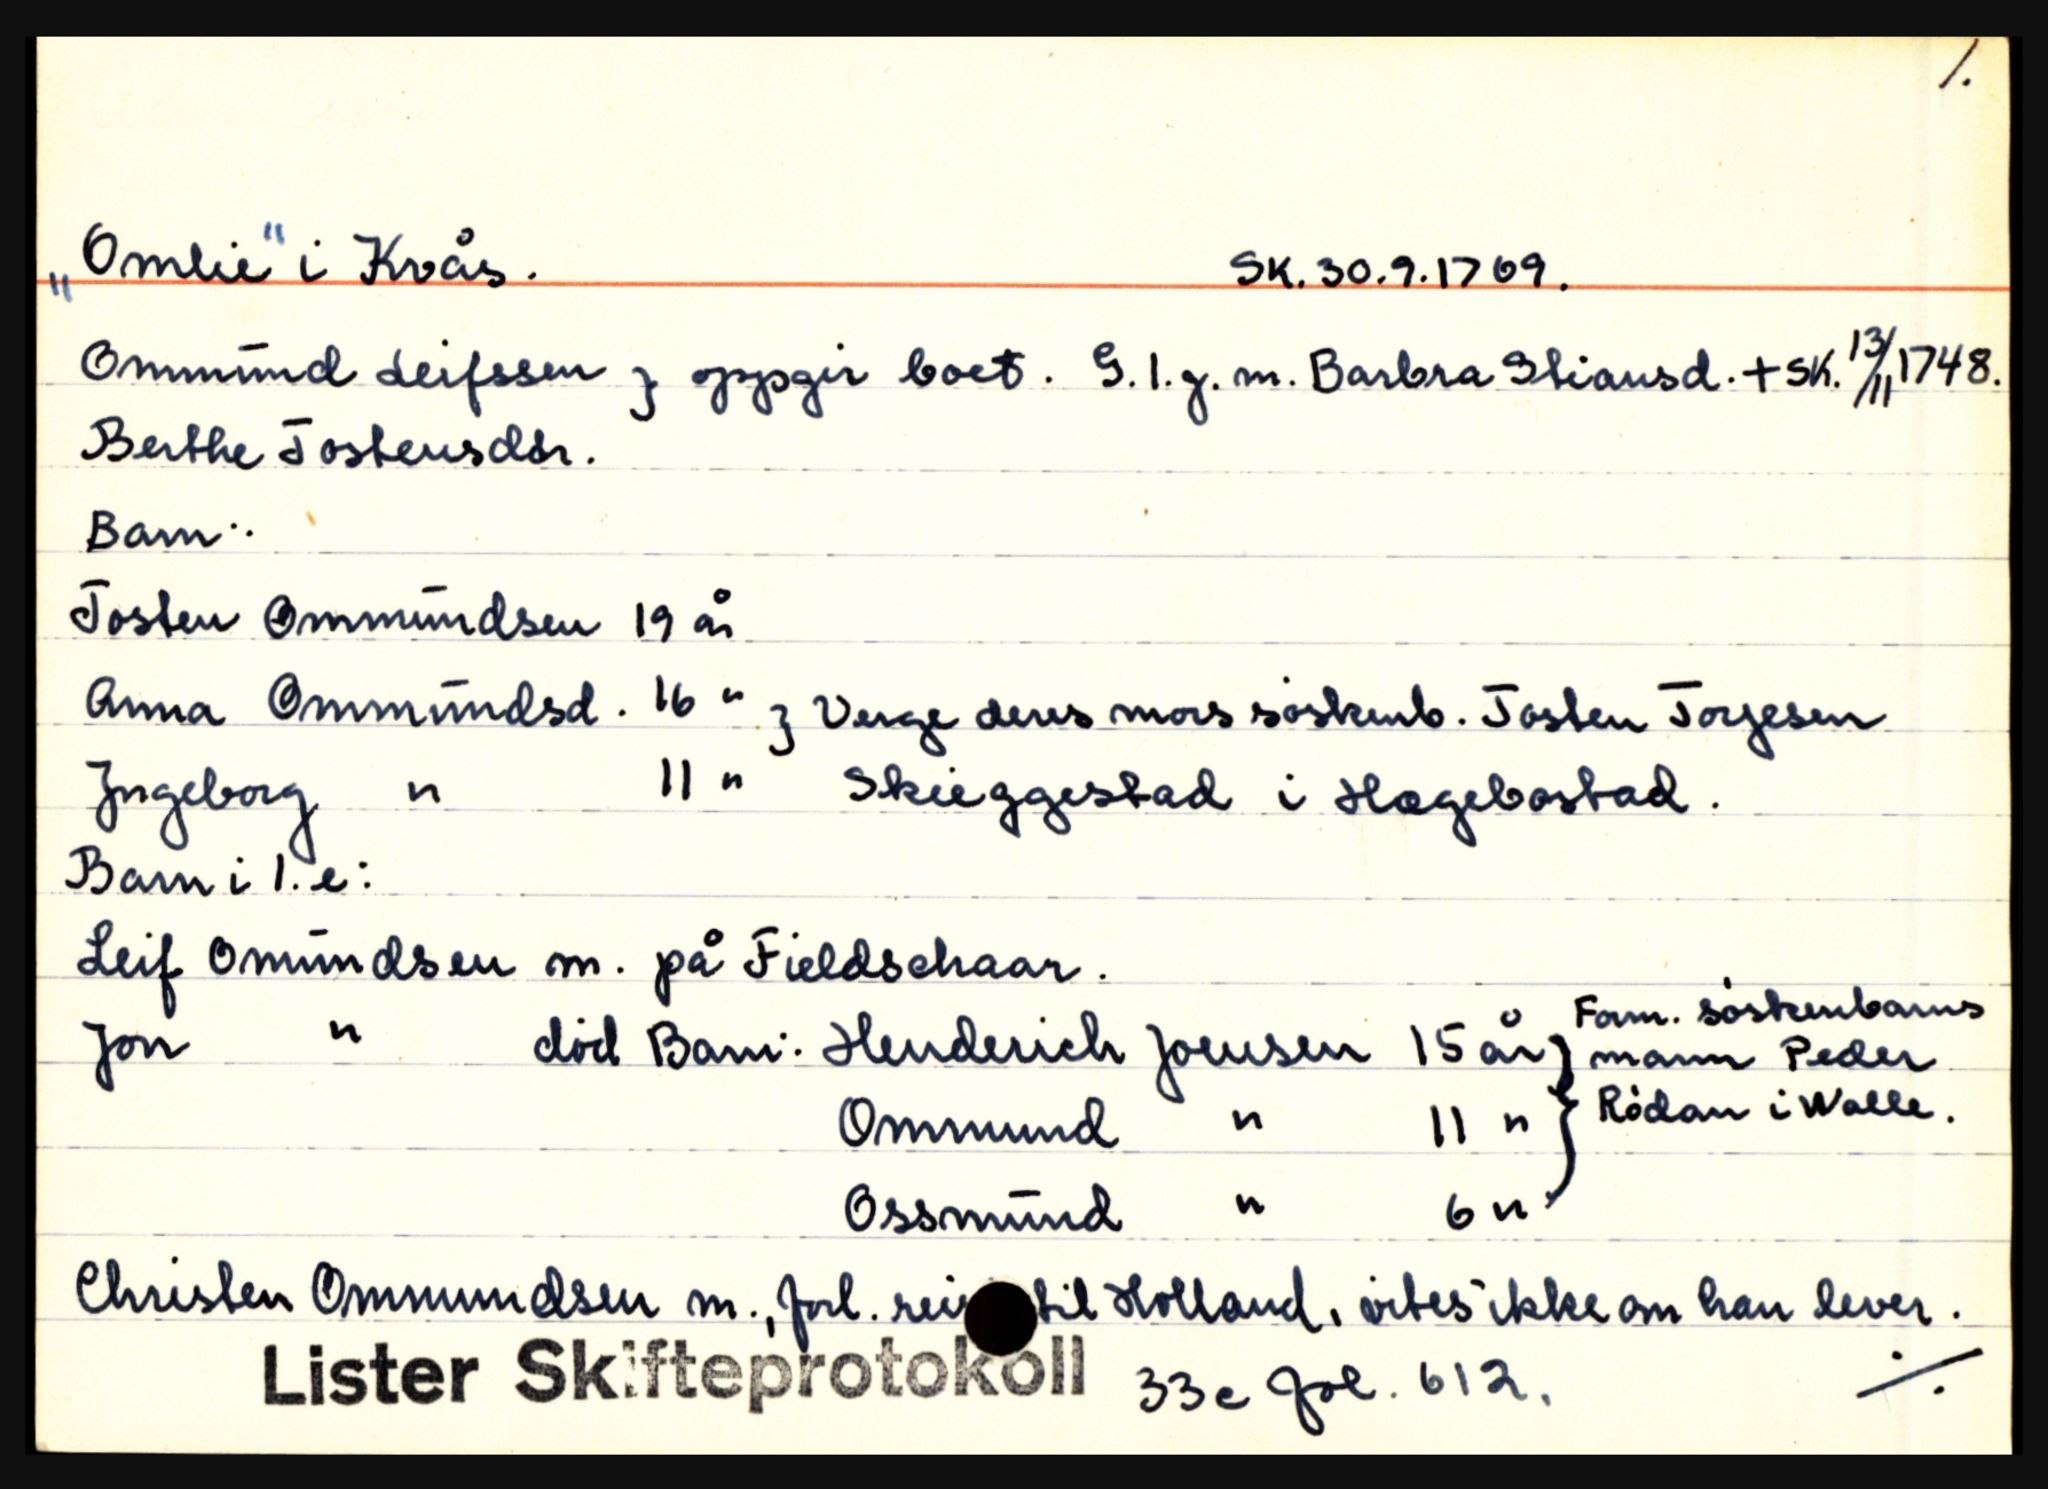 1.
„Omlie" i Kvås. Sk. 30.9.1769.
Ommund Leifssen } oppgir boet. G. 1. g. m. Barbra Stiansd. + Sk. 13/11 1748.
Berthe Tostensdtr.
Barn:
Tosten Ommundsen 19 år
Anna Ommundsd. 16 " } Verge deres mors söskenb. Tosten Torjesen
Ingeborg " 11 " Skieggestad i Hægebostad.
Barn i 1. e:
Leif Omundsen m. på Fieldschaar.
Jon " död Barn: Henderich Joensen 15 år } Form. söskenbarns
mann Peder
Rödan i Walle.
Ommund " 11 "
Ossmund " 6 "
Christen Ommundsen m., forl. reis til Holland, vites ikke om han lever.
Lister Skifteprotokoll 33c fol. 612. ./.